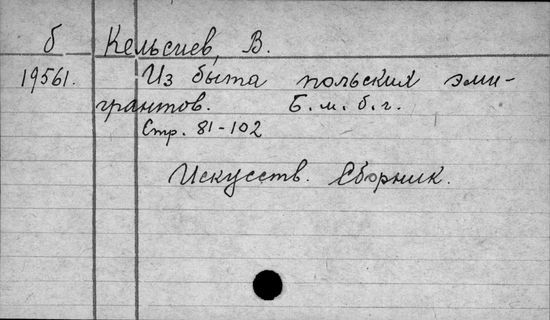 б Кельсиев, В.
19561. Из быта польских эми-
грантов. Б. м. б. г.
Стр. 81-102
Искусств. Сборник.